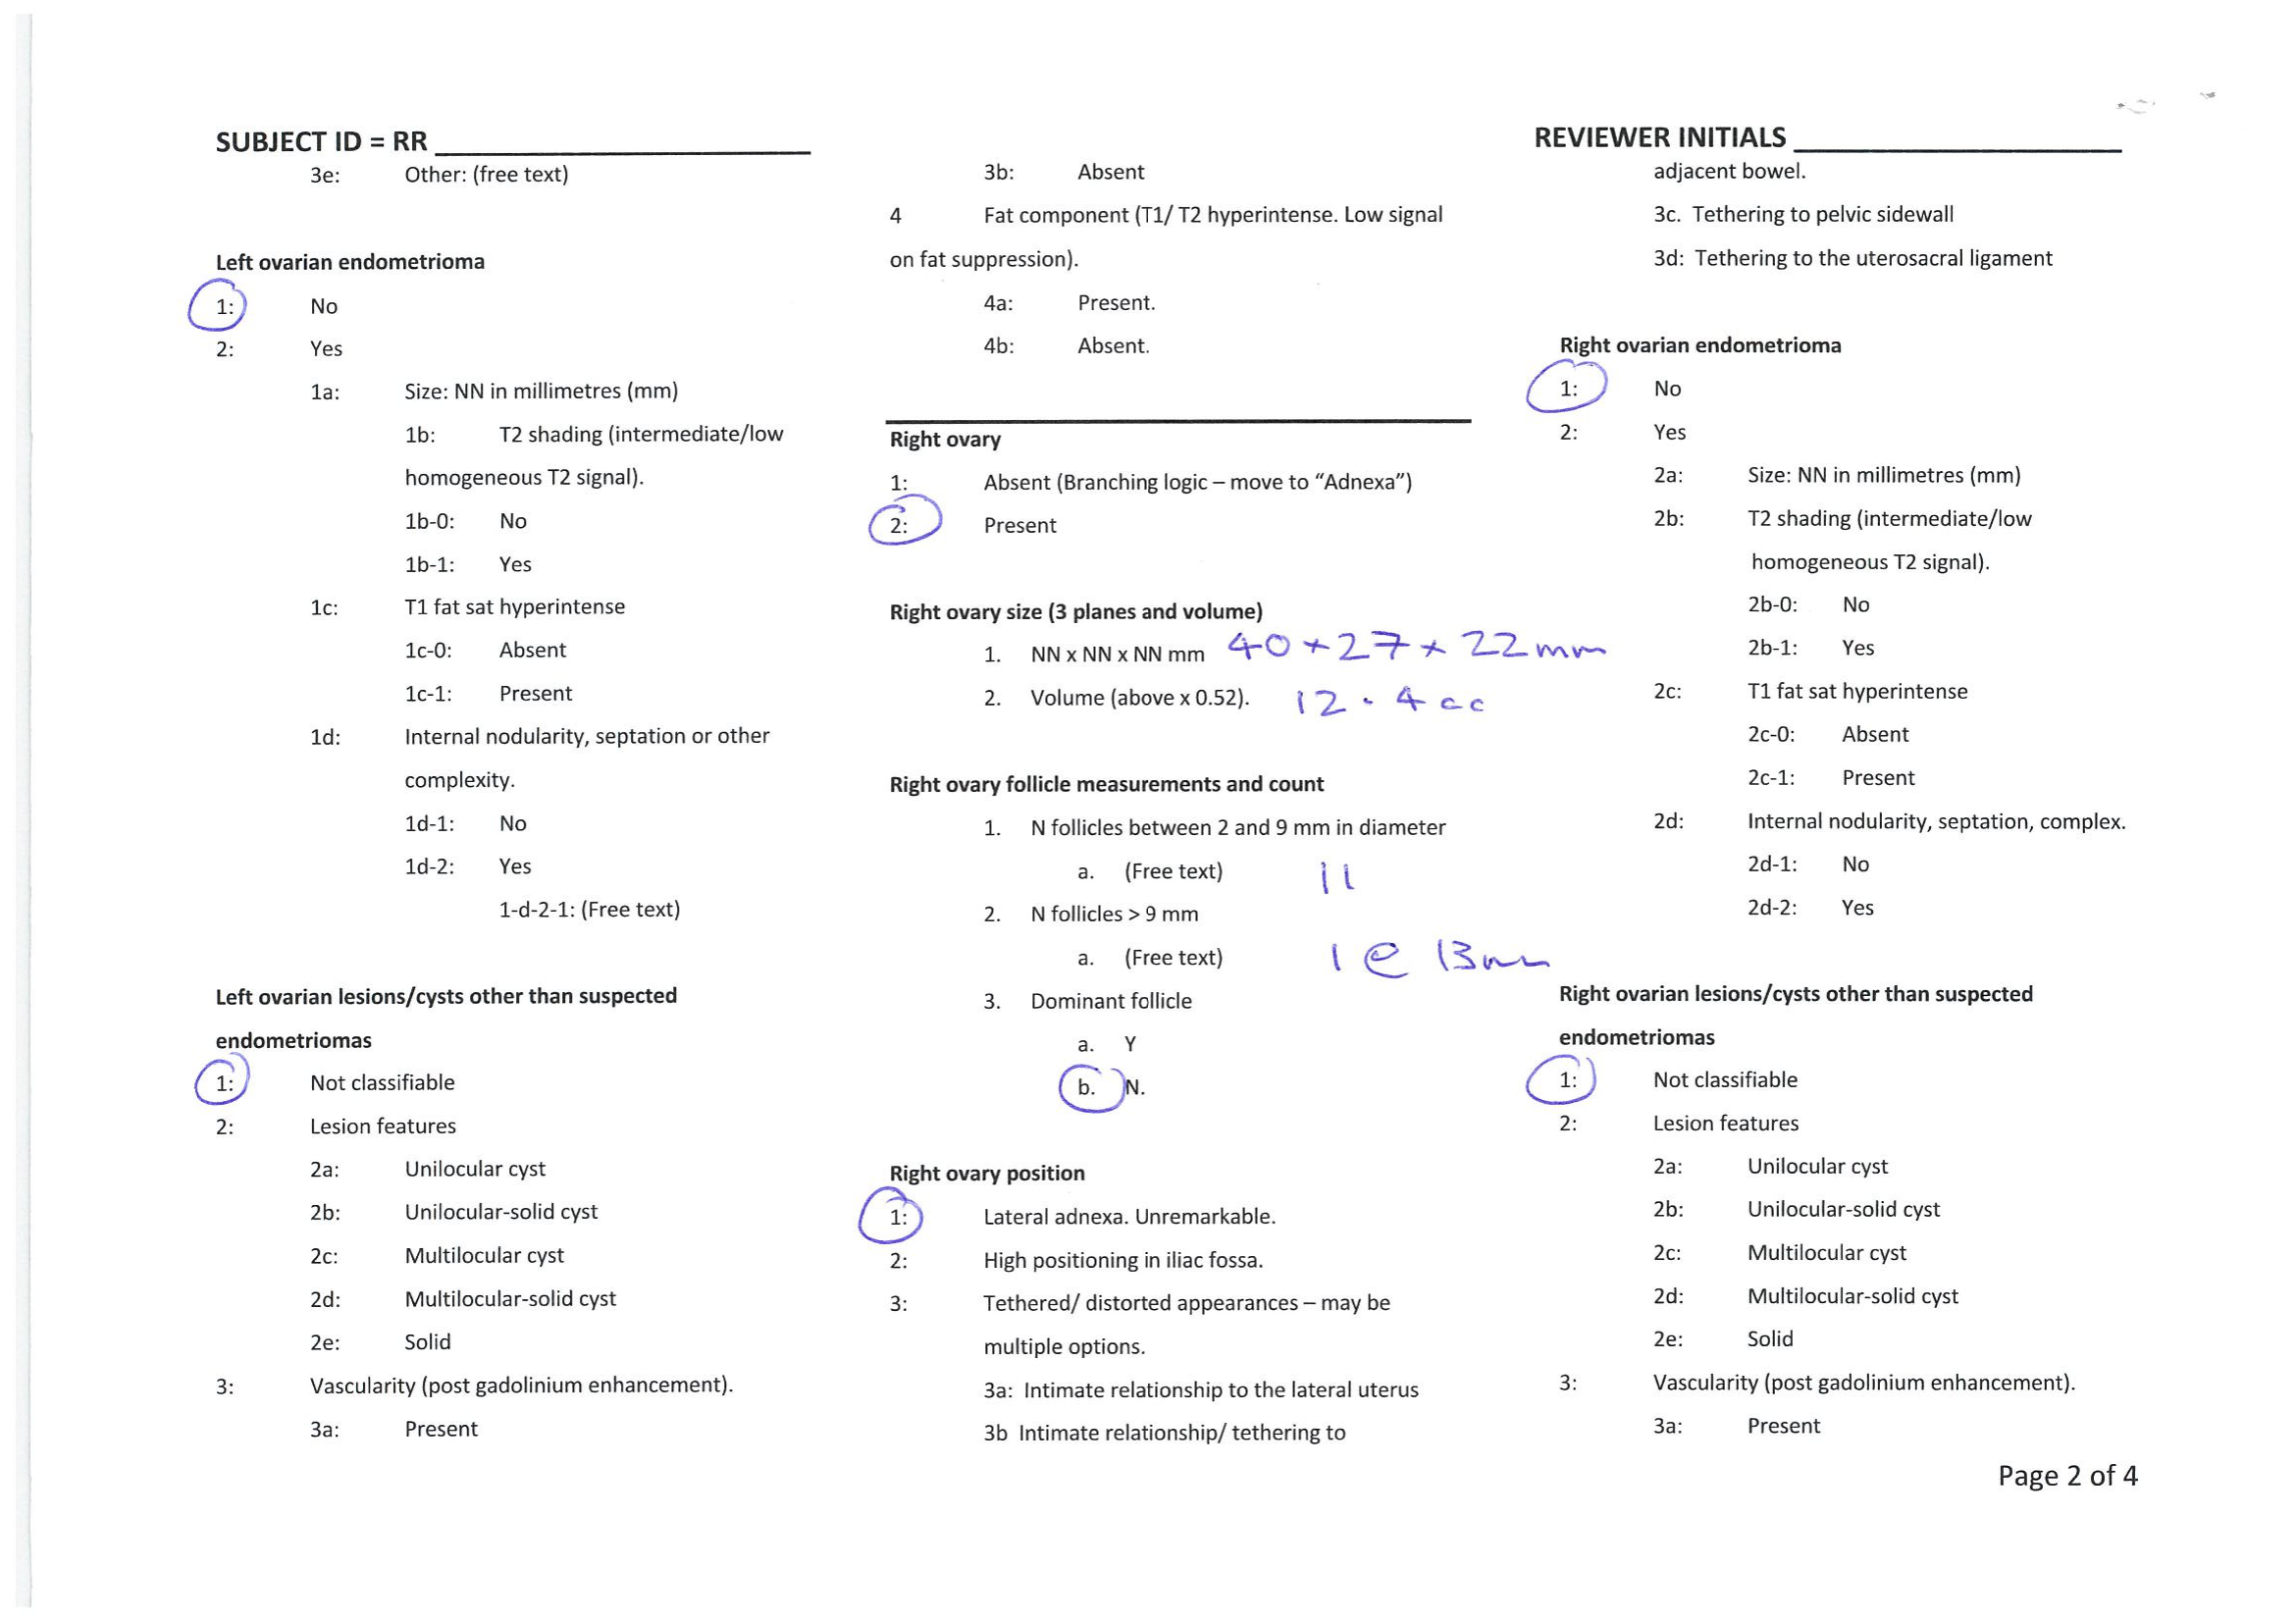 SUBJECT ID = RR
REVIEWER INITIALS
3e: Other: (free text)
Left ovarian endometrioma
1: No
2: Yes
1a: Size: NN in millimetres (mm)
1b: T2 shading (intermediate/low
homogeneous T2 signal).
1b-0: No
1b-1: Yes
1c: T1 fat sat hyperintense
1c-0: Absent
1c-1: Present
1d: Internal nodularity, septation or other
complexity.
1d-1: No
1d-2: Yes
1-d-2-1: (Free text)
Left ovarian lesions/cysts other than suspected
endometriomas
1: Not classifiable
2: Lesion features
2a: Unilocular cyst
2b: Unilocular-solid cyst
2c: Multilocular cyst
2d: Multilocular-solid cyst
2e: Solid
3: Vascularity (post gadolinium enhancement).
3a: Present
3b: Absent
4 Fat component (T1/ T2 hyperintense. Low signal
on fat suppression).
4a: Present.
4b: Absent.
Right ovary
1: Absent (Branching logic – move to “Adnexa”)
2: Present
Right ovary size (3 planes and volume)
1. NN x NN x NN mm 40 x 27 x 22mm
2. Volume (above x 0.52). 12.4 cc
Right ovary follicle measurements and count
1. N follicles between 2 and 9 mm in diameter
a. (Free text) 11
2. N follicles > 9 mm
a. (Free text) 1 @ 13mm
3. Dominant follicle
a. Y
b. N.
Right ovary position
1: Lateral adnexa. Unremarkable.
2: High positioning in iliac fossa.
3: Tethered/ distorted appearances – may be
multiple options.
3a: Intimate relationship to the lateral uterus
3b Intimate relationship/ tethering to
adjacent bowel.
3c. Tethering to pelvic sidewall
3d: Tethering to the uterosacral ligament
Right ovarian endometrioma
1: No
2: Yes
2a: Size: NN in millimetres (mm)
2b: T2 shading (intermediate/low
homogeneous T2 signal).
2b-0: No
2b-1: Yes
2c: T1 fat sat hyperintense
2c-0: Absent
2c-1: Present
2d: Internal nodularity, septation, complex.
2d-1: No
2d-2: Yes
Right ovarian lesions/cysts other than suspected
endometriomas
1: Not classifiable
2: Lesion features
2a: Unilocular cyst
2b: Unilocular-solid cyst
2c: Multilocular cyst
2d: Multilocular-solid cyst
2e: Solid
3: Vascularity (post gadolinium enhancement).
3a: Present
Page 2 of 4